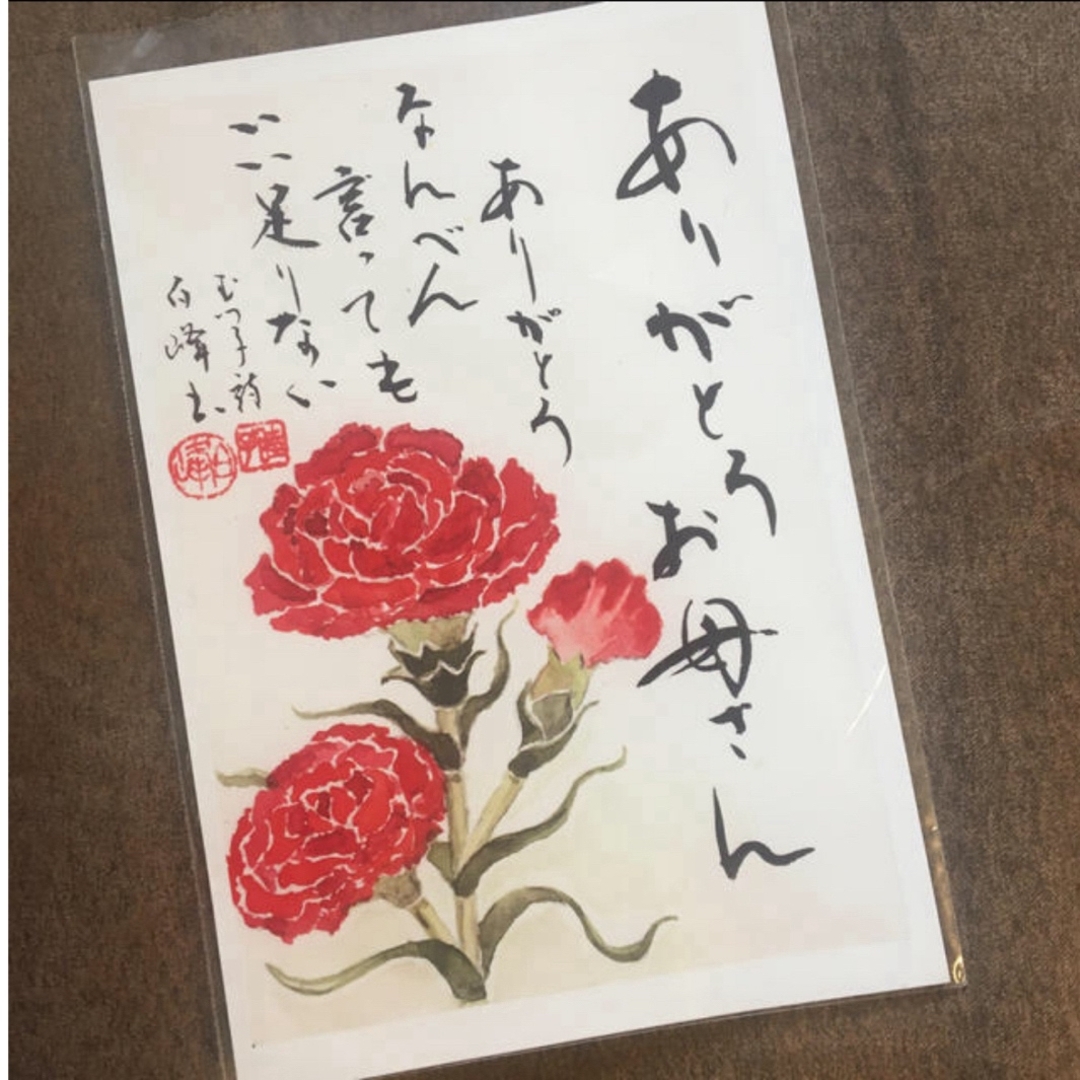 ありがとうお母さん
ありがとう
なんべん
言っても
いい足りない
白峰書
白峰